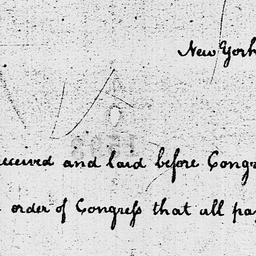 New York
received and laid before Congr
order of Congreſs that all pay